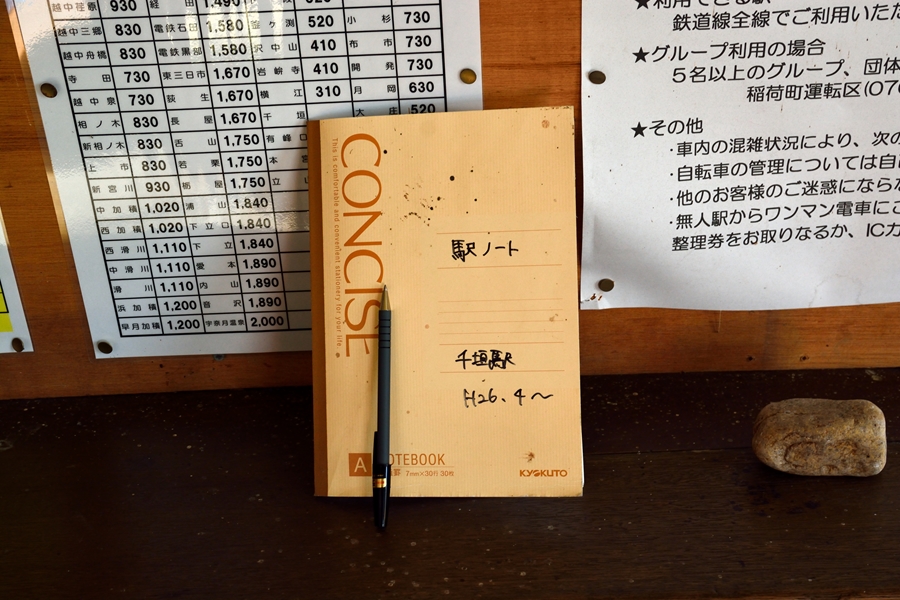 越中荏原 930 経田 1,490
越中三郷 830 電鉄石田 1,580 釜ヶ淵 520 小杉 730
越中舟橋 830 電鉄黒部 1,580 沢中山 410 布市 730
寺田 730 東三日市 1,670 岩峅寺 410 開発 730
越中泉 730 荻生 1,670 横江 310 月岡 630
相ノ木 830 長屋 1,670 千垣 大庄 520
新相ノ木 830 舌山 1,750 有峰口
上市 830 若栗 1,750 本宮
新宮川 930 栃屋 1,750 立
中加積 1,020 浦山 1,840
西加積 1,020 下立口 1,840
西滑川 1,110 下立 1,840
中滑川 1,110 愛本 1,890
滑川 1,110 内山 1,890
浜加積 1,200 音沢 1,890
早月加積 1,200 宇奈月温泉 2,000
CONCISE
This is comfortable and convenient stationary for your life.
駅ノート
千垣駅
H26.4〜
A NOTEBOOK
7mm×30行 30枚
KYOKUTO
★利用できる駅
鉄道線全線でご利用いただ
★グループ利用の場合
５名以上のグループ、団体
稲荷町運転区(076
★その他
・車内の混雑状況により、次の
・自転車の管理については自
・他のお客様のご迷惑にならな
・無人駅からワンマン電車にご
整理券をお取りなるか、ICカ